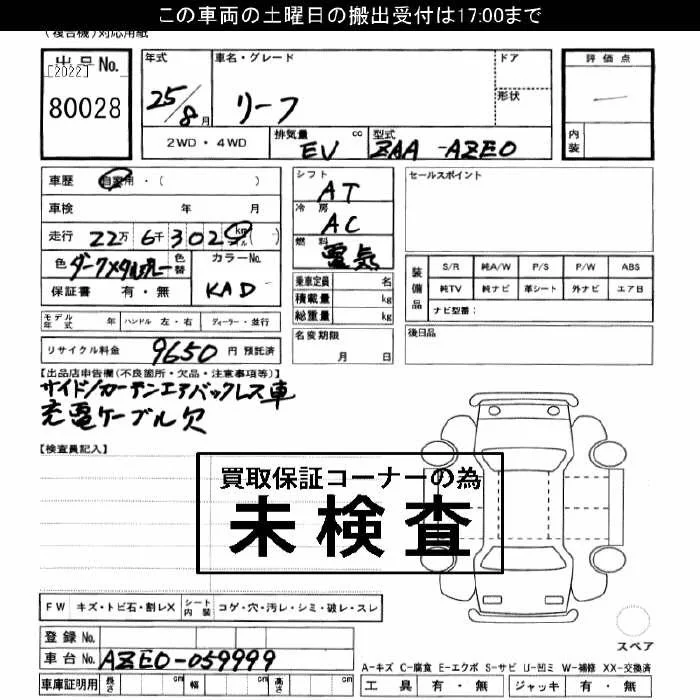 この車両の土曜日の搬出受付は17:00まで
(複合機)対応用紙
出品No.
[2022]
80028
年式 25/8月
車名・グレード リーフ
ドア
形状
評価点
内装
2WD・4WD
排気量 cc EV
型式 ZAA-AZE0
車歴 自家用・( )
車検 年 月
走行 22万 6千 302 km マイル ( )
色 ダークメタルグレー 色替
カラーNo. KAD
保証書 有・無
シフト AT
冷房 AC
燃料 電気
乗車定員 名
積載量 kg
総重量 kg
名変期限 月 日
セールスポイント
装備品
S/R 純A/W P/S P/W ABS
純TV 純ナビ 革シート 外ナビ エアB
ナビ型番:
後日品
モデル年式 年 ハンドル 左・右 ディーラー・並行
リサイクル料金 9650 円 預託済
【出品店申告欄(不良箇所・欠品・注意事項等)】
サイド/カーテンエアバックレス車
充電ケーブル欠
【検査員記入】
買取保証コーナーの為
未検査
FW キズ・トビ石・割レX シート内装 コゲ・穴・汚レ・シミ・破レ・スレ
登録No.
車台No. AZE0-059999
車庫証明用 長さ cm 幅 cm 高さ cm
スペア
A-キズ C-腐食 E-エクボ S-サビ U-凹ミ W-補修 XX-交換済
工具 有・無 ジャッキ 有・無